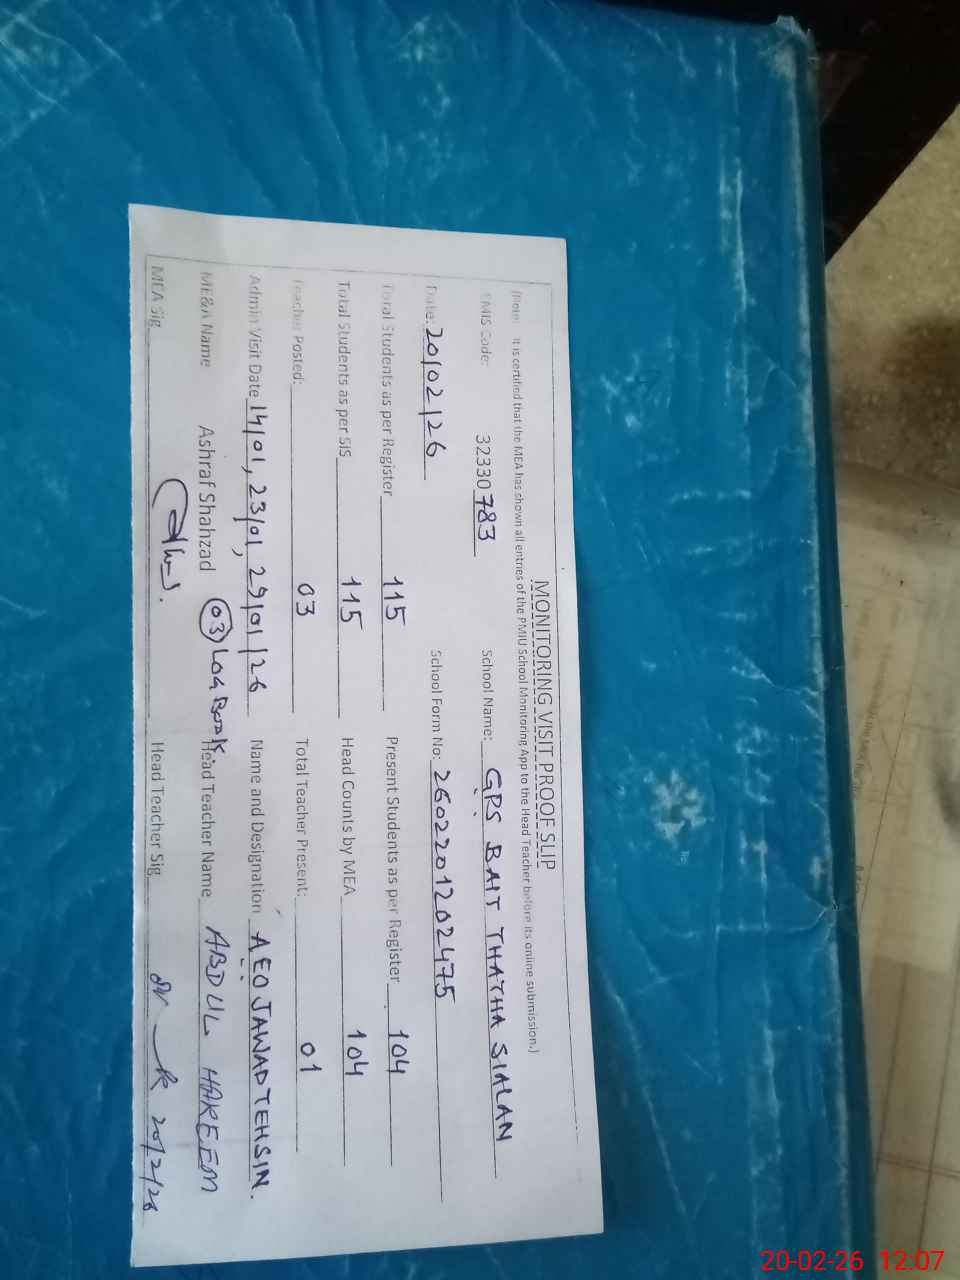 MONITORING VISIT PROOF SLIP
(Note: It is certified that the MEA has shown all entries of the PMIU School Monitoring App to the Head Teacher before its online submission.)
EMIS Code: 32330783 School Name: GPS BAIT THATHA SIALAN
Date: 20/02/26 School Form No: 2602201202475
Total Students as per Register 115 Present Students as per Register 104
Total Students as per SIS 115 Head Counts by MEA 104
Teacher Posted: 03 Total Teacher Present: 01
Admin Visit Date 14/01, 23/01, 29/01/26 Name and Designation AEO JAWAD TEHSIN.
ME&A Name Ashraf Shahzad 03 Log Book Head Teacher Name ABDUL HAKEEM
MEA Sig Head Teacher Sig 20/2/26
20-02-26 12:07